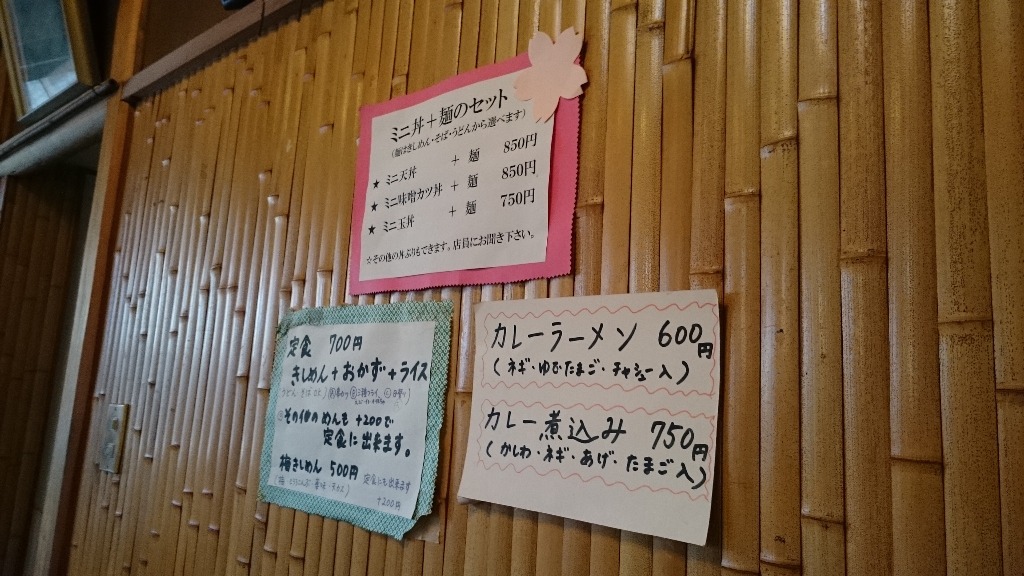 ミニ丼＋麺のセット
(麺はきしめん・そば・うどんから選べます)
★ ミニ天丼 ＋ 麺 850円
★ ミニ味噌カツ丼 ＋ 麺 850円
★ ミニ玉丼 ＋ 麺 750円
☆その他の丼ぶりもできます。店員にお聞き下さい。
定食 700円
きしめん+おかず+ライス
その他のめんも +200で
定食に出来ます。
梅きしめん 500円
定食にも出来ます
+200円
カレーラーメン 600円
(ネギ・ゆでたまご・チャシュー入)
カレー煮込み 750円
(かしわ・ネギ・あげ・たまご入)